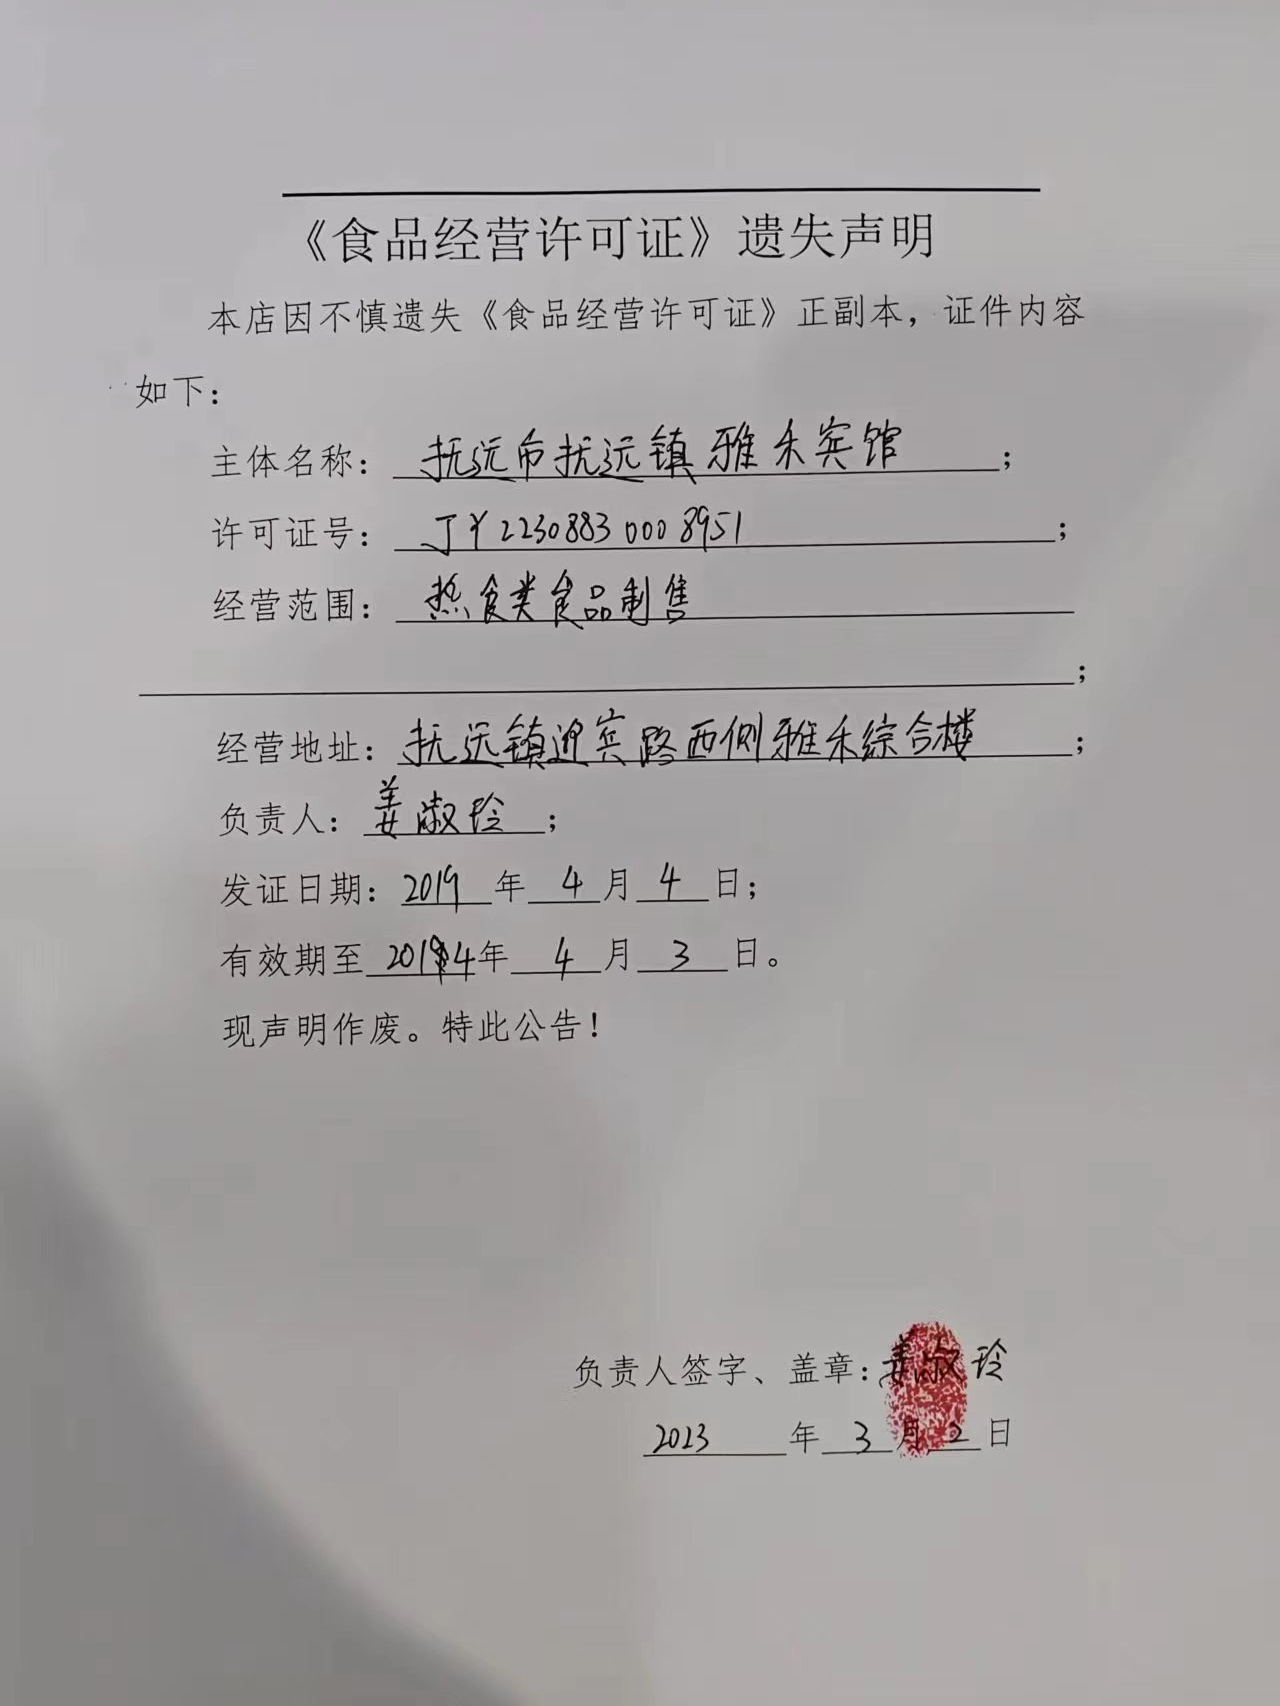 《食品经营许可证》遗失声明
本店因不慎遗失《食品经营许可证》正副本，证件内容
如下：
主体名称：抚远市抚远镇雅禾宾馆；
许可证号：JY22308830008951；
经营范围：热食类食品制售
；
经营地址：抚远镇迎宾路西侧雅禾综合楼；
负责人：姜淑玲；
发证日期：2019年4月4日；
有效期至 2014年4月3日。
现声明作废。特此公告！
负责人签字、盖章：姜淑玲
2023年3月2日